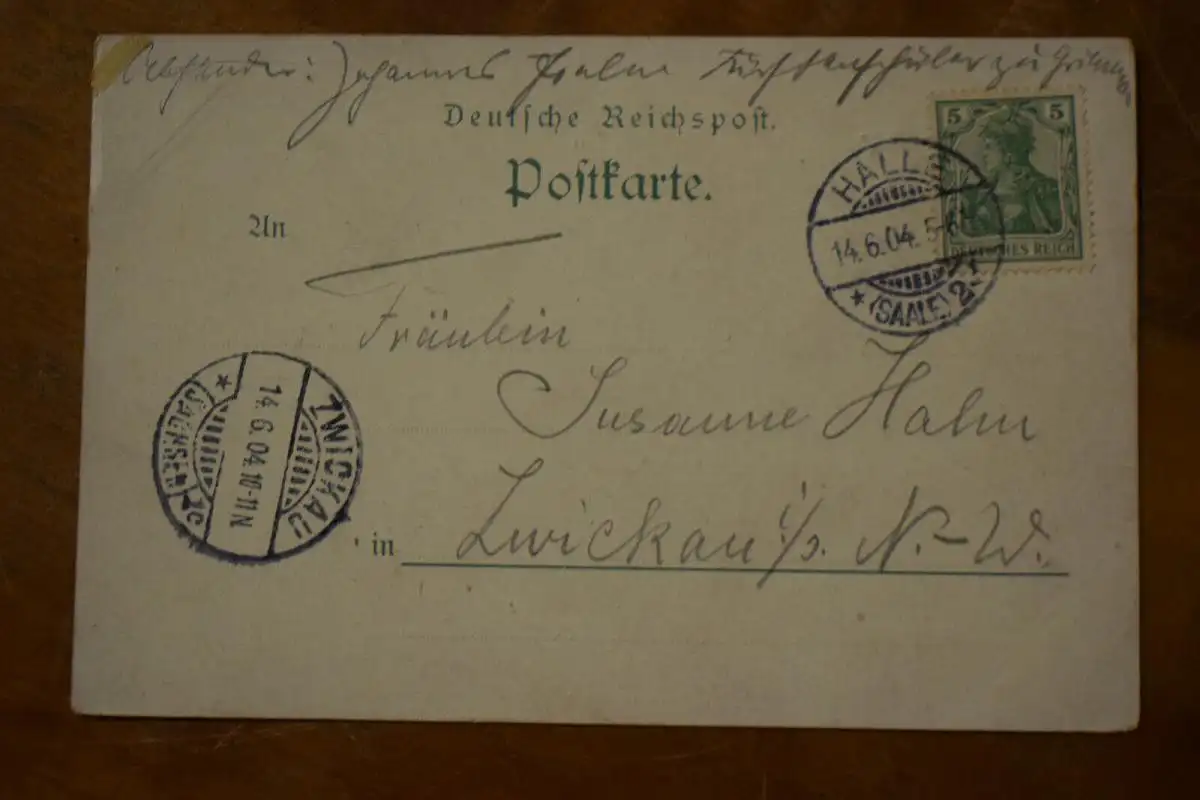 Absender: Johannes Fürstenschüler zu Grimma
Deutsche Reichspost.
Postkarte.
5 5
DEUTSCHES REICH
HALLE
14.6.04.
* (SAALE) 2
An
Fräulein
Susanne Hahn
ZWICKAU
14.6.04.10-11N
(SACHSEN) *
in Zwickau i/s. N.-W.